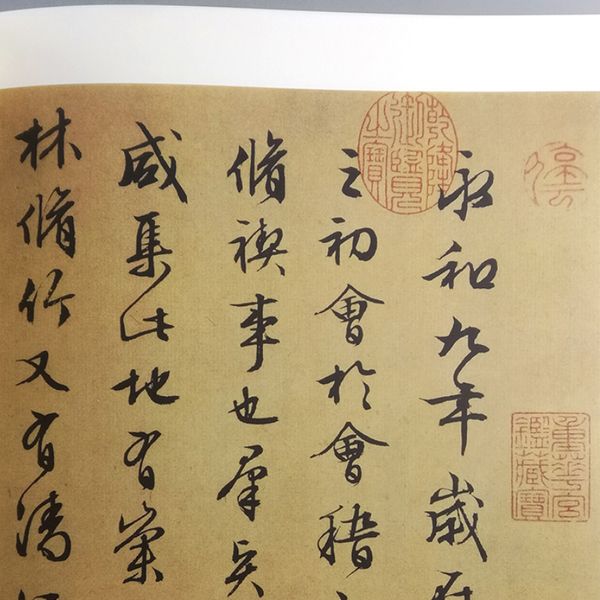 永和九年歲
之初會於會稽
脩禊事也羣賢
咸集此地有崇
林脩竹又有清
乾隆御覽之寶
重華宮鑑藏寶